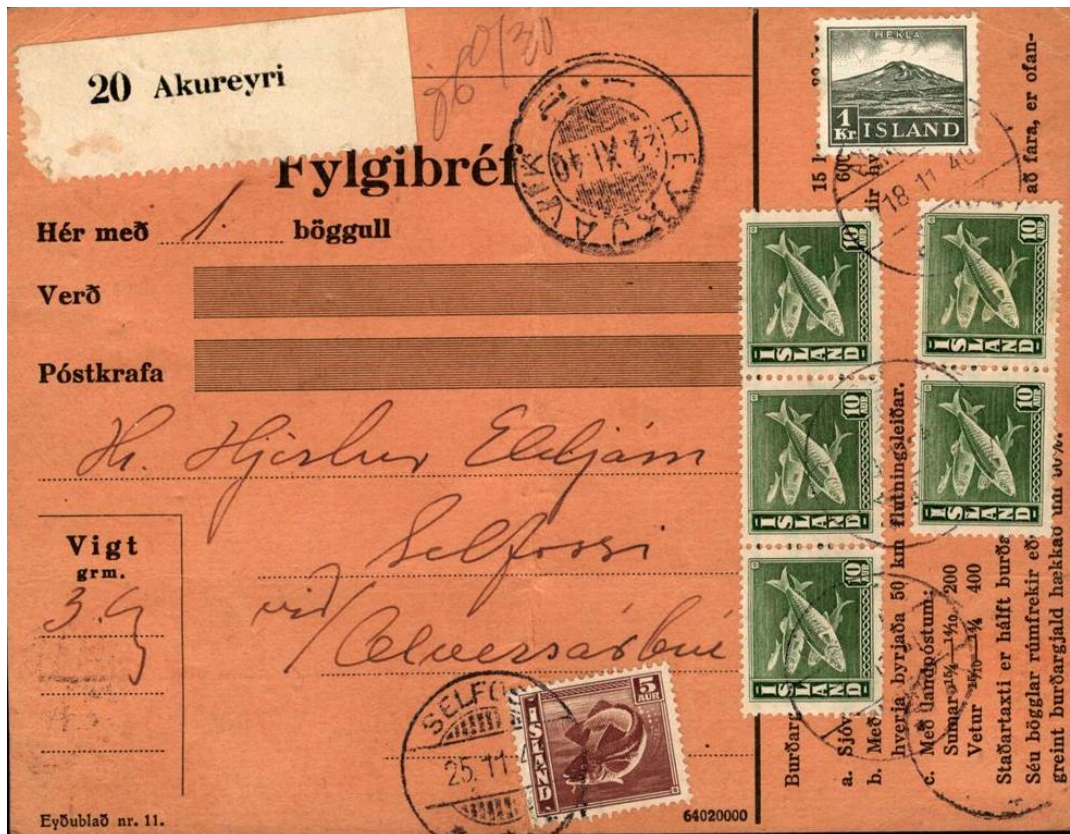 20 Akureyri
Fylgibréf
Hér með 1. böggull
Verð
Póstkrafa
Hr. Hjörtur Eldjárn
Selfossi
við Ölvesárbrú
Vigt
grm.
3.
Eyðublað nr. 11.
64020000
REYKJAVIK
22.XI.40
HEKLA
1 Kr. ISLAND
18.11.40
10 AUR ISLAND
10 AUR ISLAND
10 AUR ISLAND
10 AUR ISLAND
10 AUR ISLAND
5 AUR ISLAND
SELFO
25.11.4
15
600
að fara, er ofan-
Burðarg
a. Sjóv
b. Með
hverja byrjaða 50 km flutningsleiðar.
c. Með landpóstum:
Sumar 15/4—14/10 200
Vetur 15/10—14/4 400
Staðartaxti er hálft burða
Séu bögglar rúmfrekir eð
greint burðargjald hækkað um 50%.